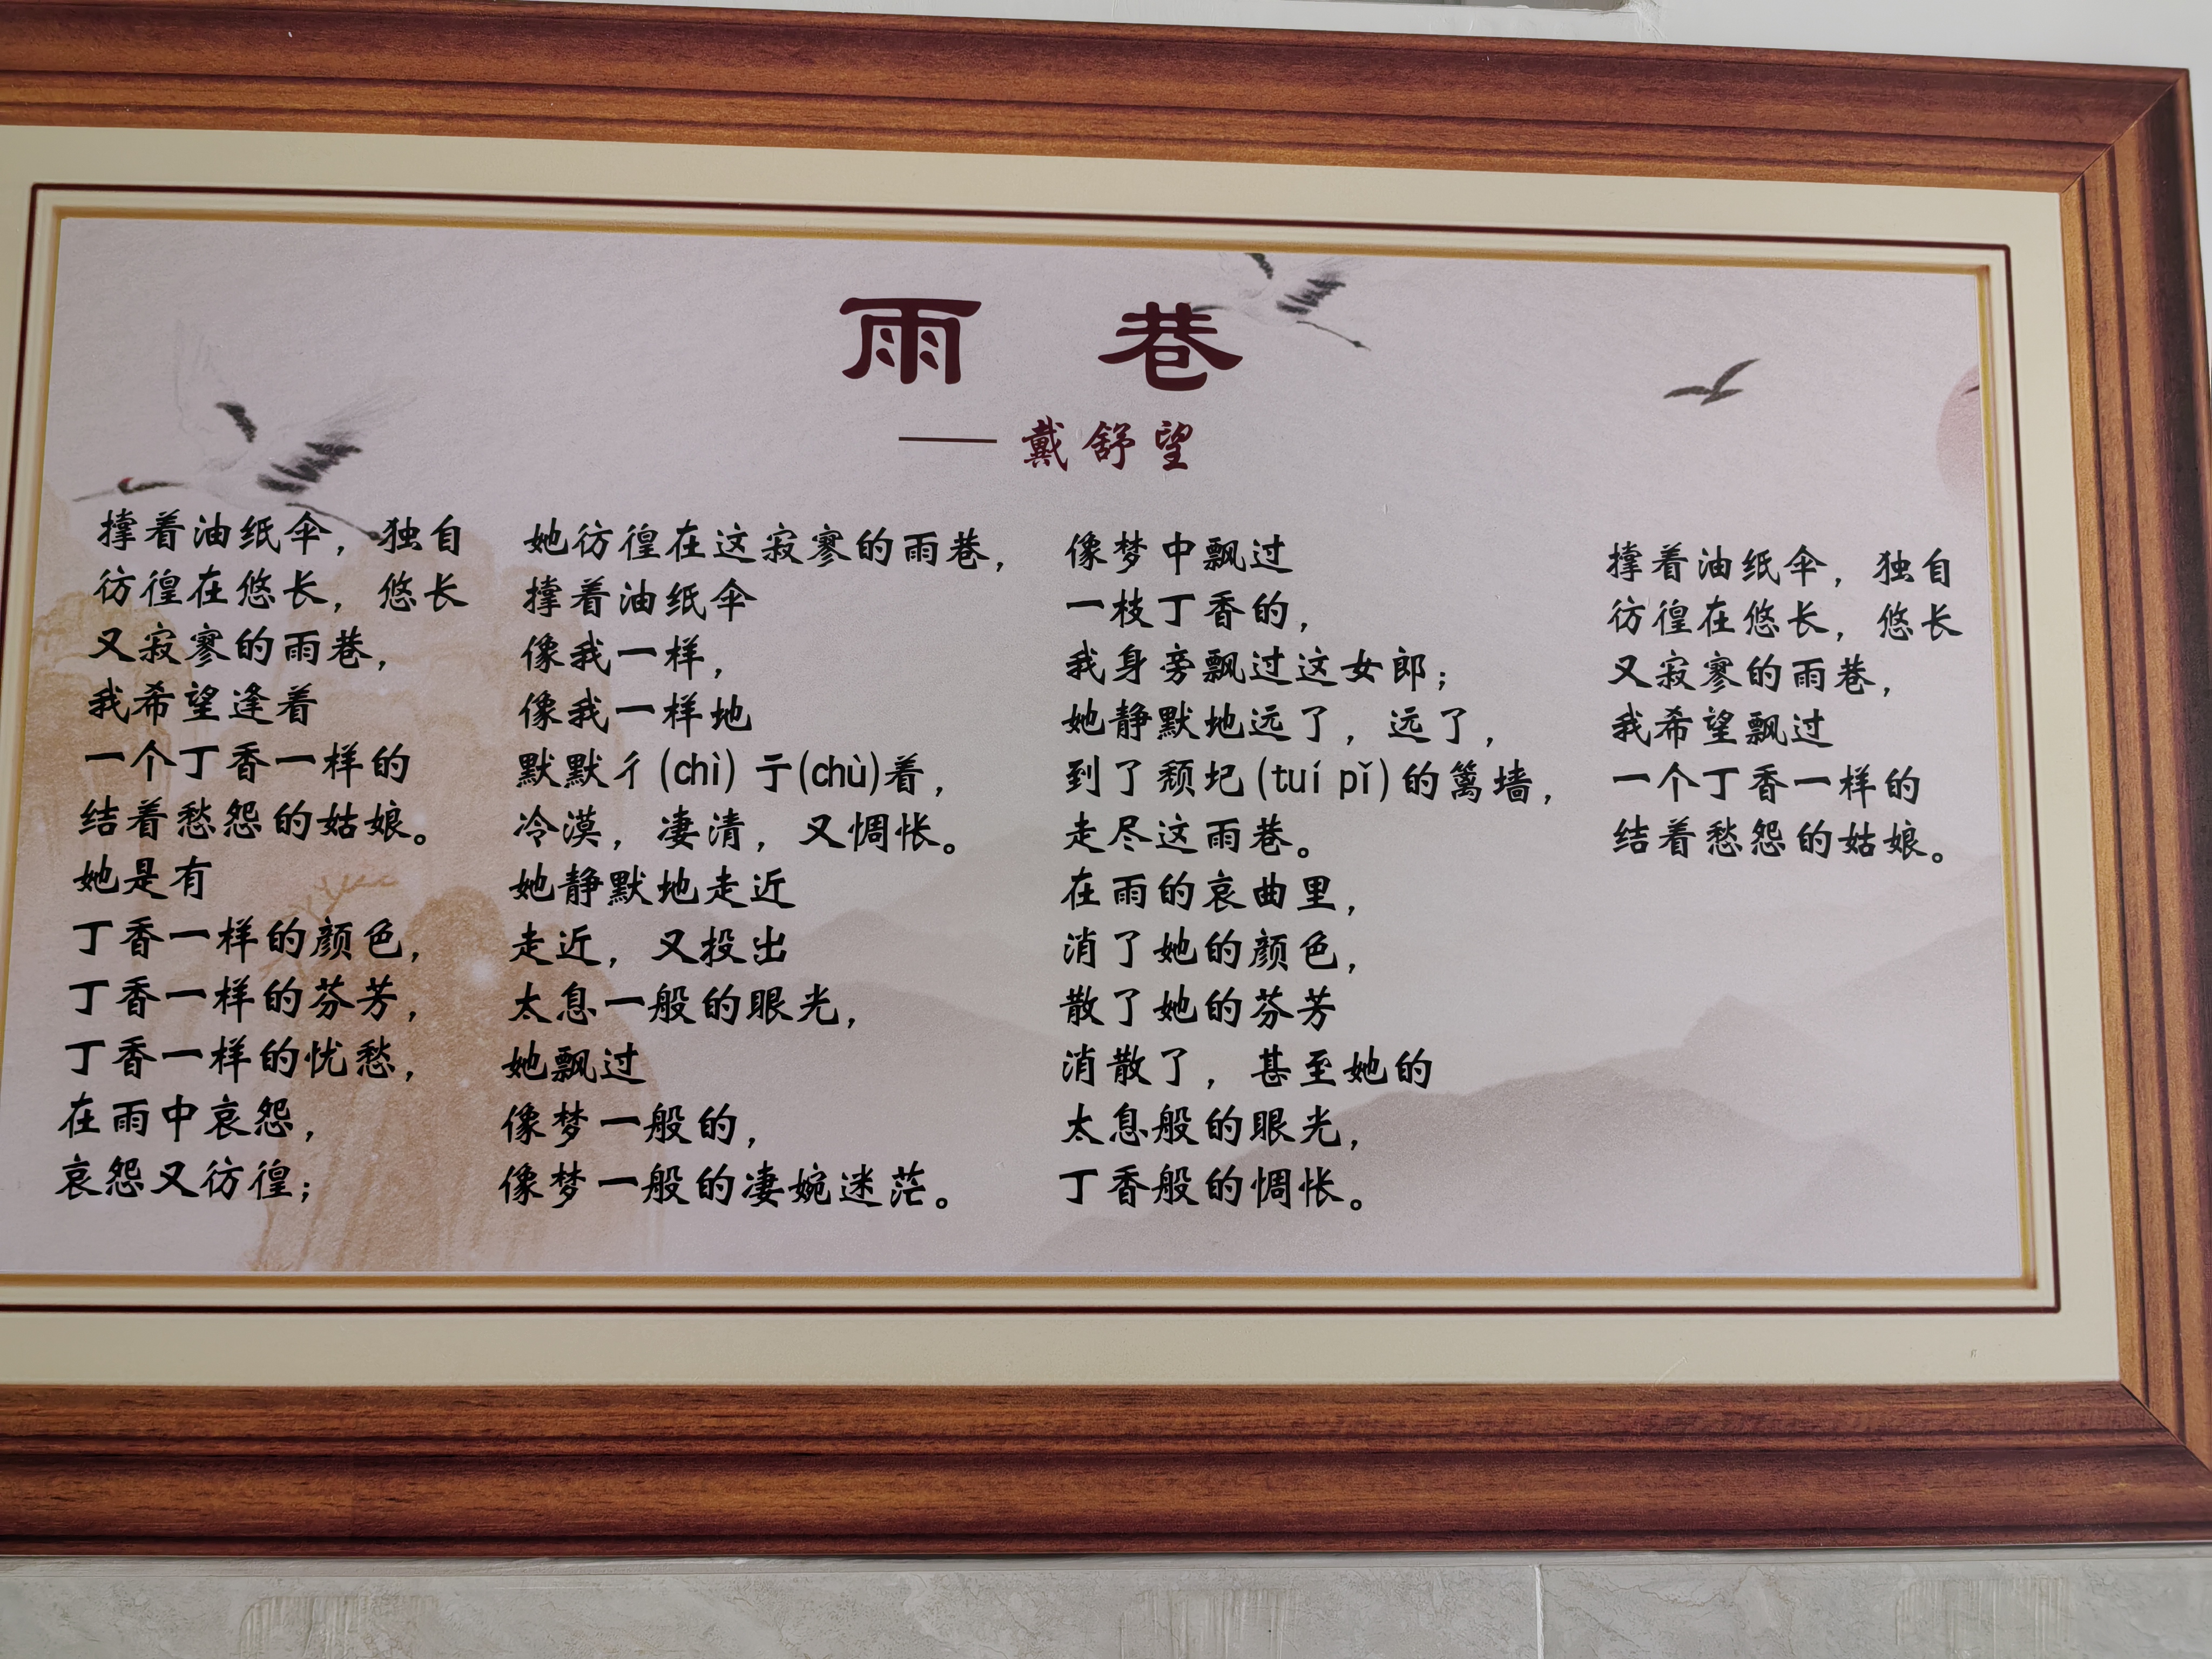 雨巷
——戴舒望
撑着油纸伞，独自
彷徨在悠长，悠长
又寂寥的雨巷，
我希望逢着
一个丁香一样的
结着愁怨的姑娘。
她是有
丁香一样的颜色，
丁香一样的芬芳，
丁香一样的忧愁，
在雨中哀怨，
哀怨又彷徨；
她彷徨在这寂寥的雨巷，
撑着油纸伞
像我一样，
像我一样地
默默彳(chì)亍(chù)着，
冷漠，凄清，又惆怅。
她静默地走近
走近，又投出
太息一般的眼光，
她飘过
像梦一般的，
像梦一般的凄婉迷茫。
像梦中飘过
一枝丁香的，
我身旁飘过这女郎；
她静默地远了，远了，
到了颓圮(tuí pǐ)的篱墙，
走尽这雨巷。
在雨的哀曲里，
消了她的颜色，
散了她的芬芳
消散了，甚至她的
太息般的眼光，
丁香般的惆怅。
撑着油纸伞，独自
彷徨在悠长，悠长
又寂寥的雨巷，
我希望飘过
一个丁香一样的
结着愁怨的姑娘。